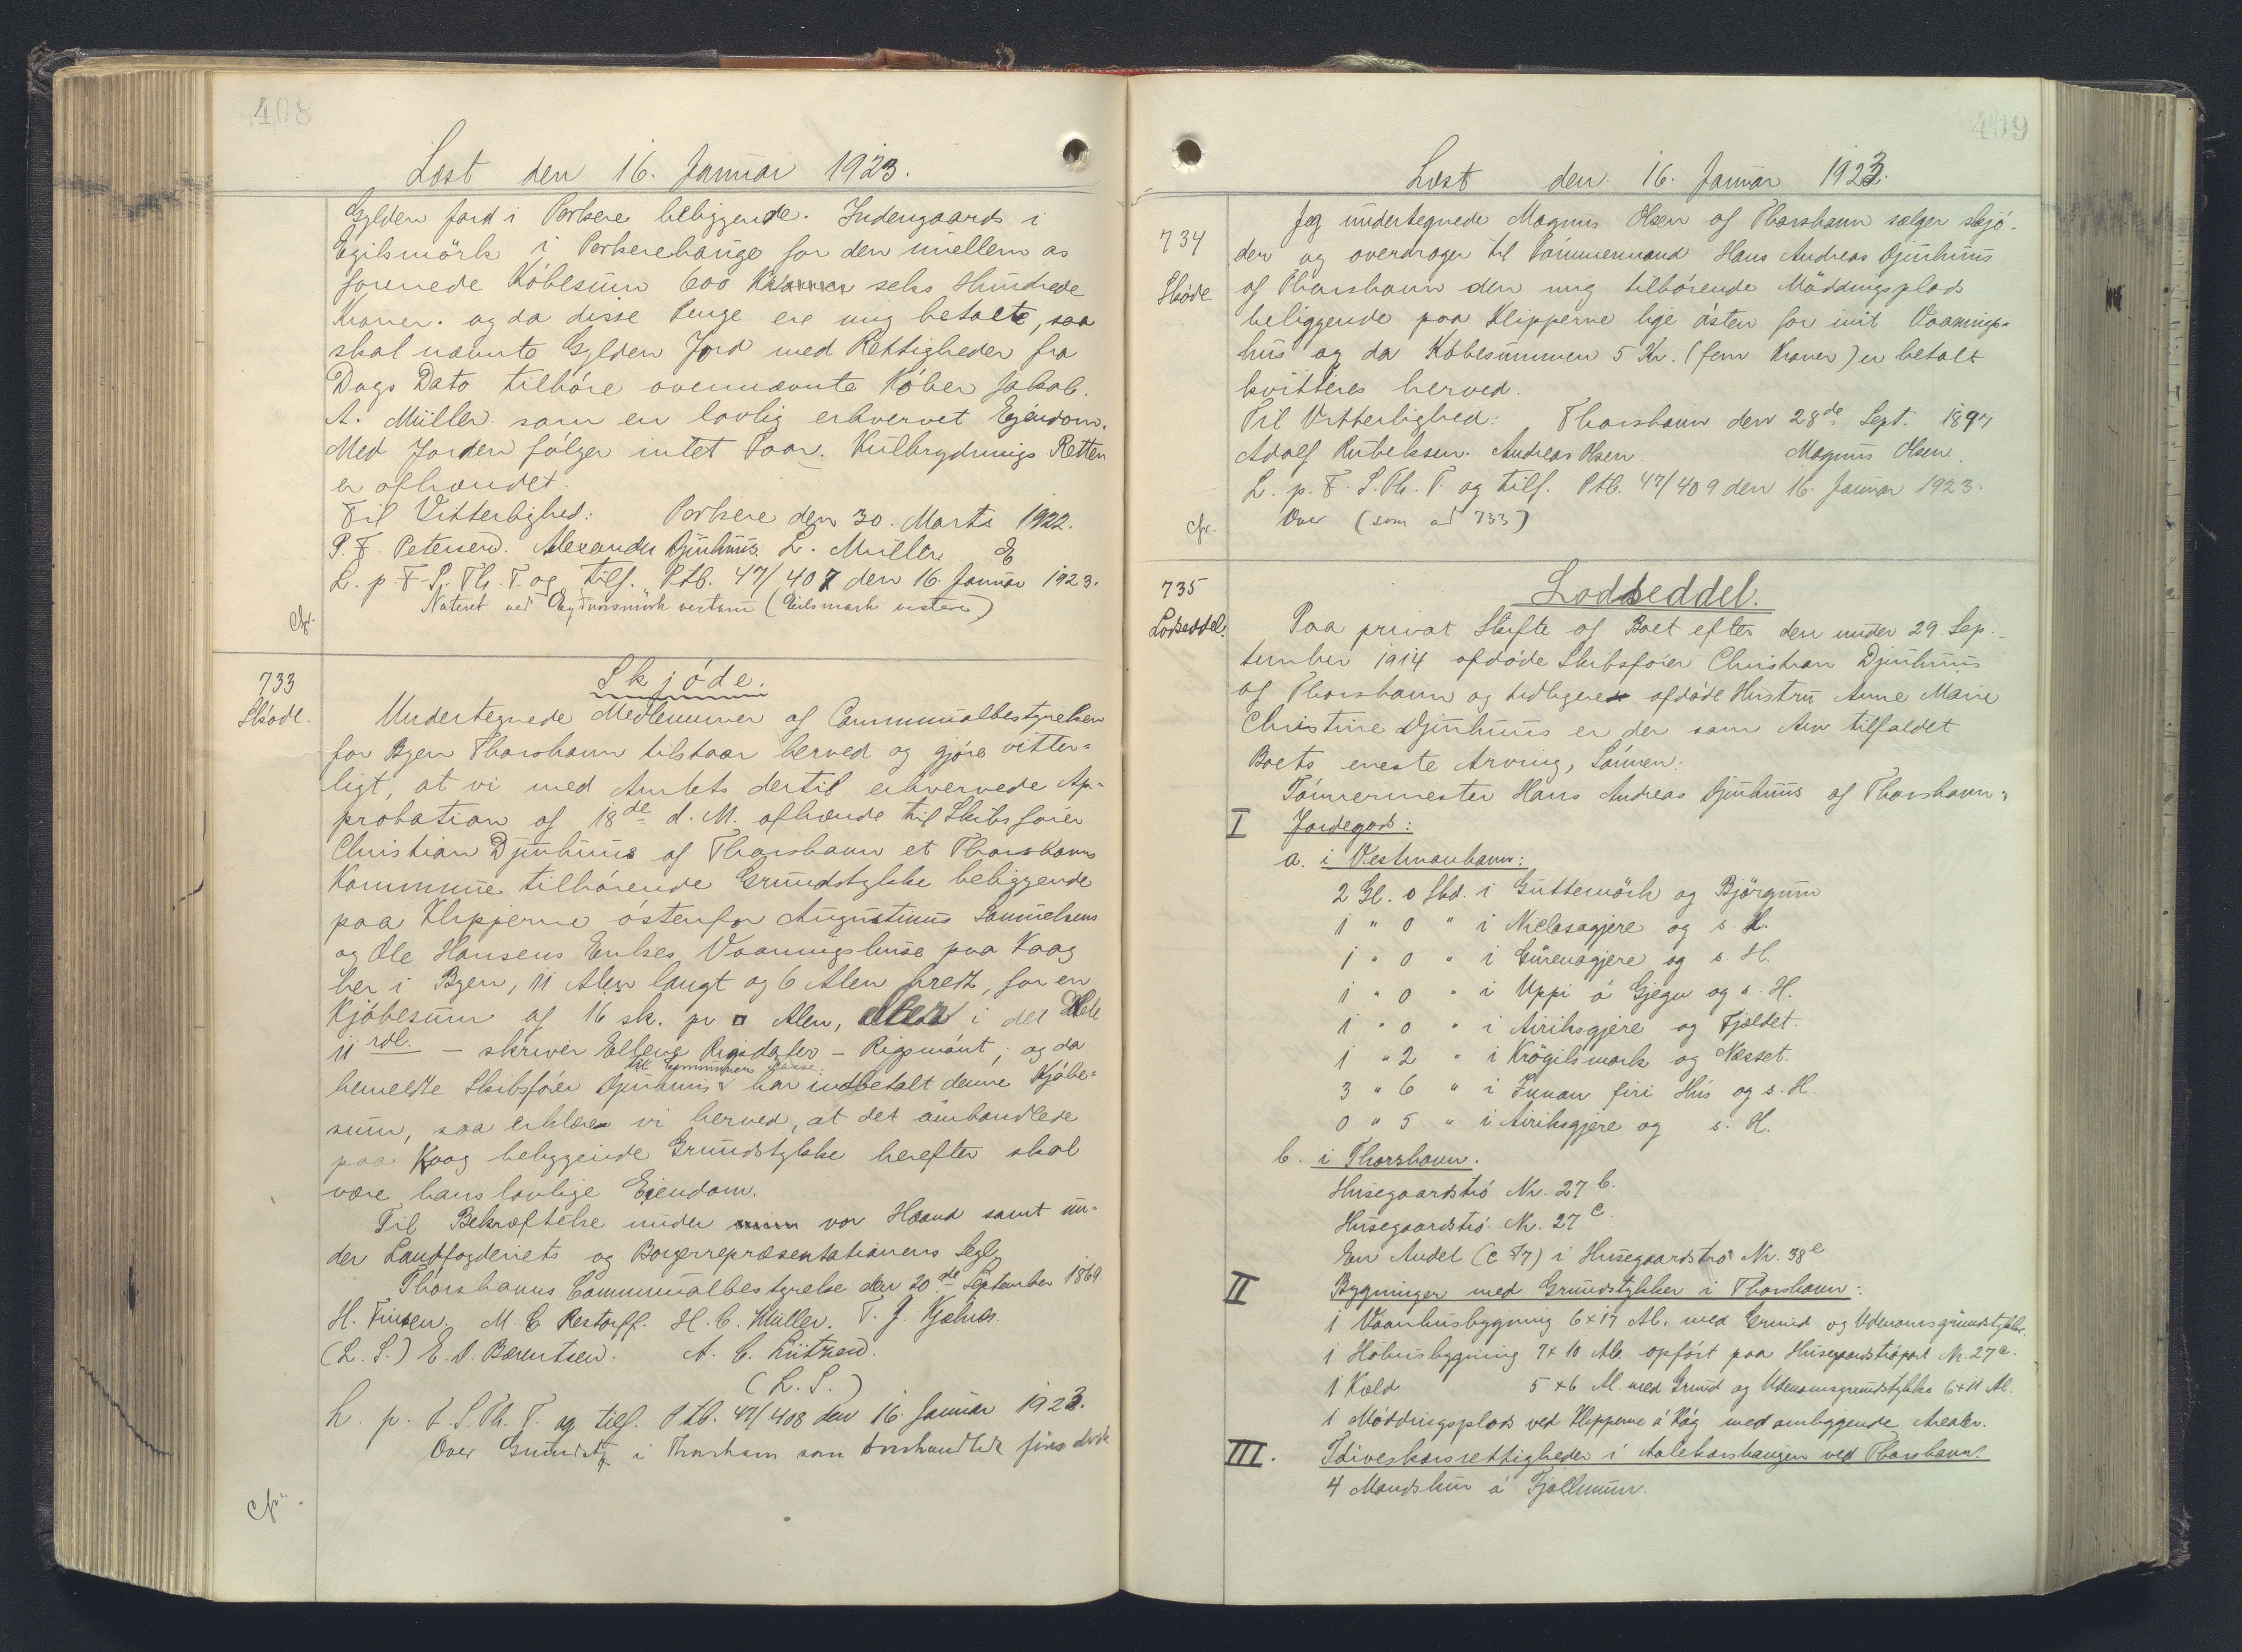 408
Læst den 16. Januar 1923.
Gylden Jord i Porkere beliggende. Indengaards i
Egilsmörk i Porkerehauge for den imellem os
forenede Köbesum 600 Kroner seks Hundrede
Kroner. og da disse Penge ere mig betalte, saa
skal nævnte Gylden Jord med Rettigheder fra
Dags Dato tilhöre ovennævnte Köber Jakob.
A. Müller som en lovlig erhvervet Ejendom.
Med Jorden fölger intet Faar. Kulbrydnings Retten
er afhændet.
Til Vitterlighed: Porkere den 30. Marts 1922.
P. F. Petersen. Alexander Djurhuus. L. Müller
L. p. F. S. Th. T. og tilf. Ptb. 47/407 den 16. Januar 1923.
Noteret ved
cfr.
733
Sköde.
Skjöde.
Undertegnede Medlemmer af Communalbestyrelsen
for Byen Thorshavn tilstaar herved og gjöre vitter=
ligt, at vi med Amtets dertil erhvervede Ap=
probation af 18de d. M. afhænde til Skibsförer
Christian Djurhuus af Thorshavn et Thorshavns
Kommune tilhörende Grundstykke beliggende
paa Klipperne östenfor Augustinus Samuelsens
og Ole Hansens Enkes Vaaningshuse paa Vaag
her i Byen, 11 Alen langt og 6 Alen bredt, for en
Kjöbesum af 16 sk. pr □ Alen, eller i det Hele
11 rdl. - skriver Elleve Rigsdaler - Rigsmönt; og da
til Communens Kasse
bemeldte Skibsförer Djurhuus har indbetalt denne Kjöbe=
sum, saa erklære vi herved, at det omhandlede
paa Vaag beliggende Grundstykke herefter skal
være hans lovlige Eiendom.
Til Bekræftelse under vor Haand samt un=
der Landfogderiets og Borgerrepræsentationens Segl.
Thorshavns Communalbestyrelse den 20de September 1869.
H. Finsen. M. C. Restorff. H. C. Müller. T. J. Kjelnæs.
(L. S.) E. D. Bærentsen. A. C. Lützen.
(L. S.)
L. p. F. S. Th. T. og tilf. Ptb. 47/408 den 16. Januar 1923.
Over Grundst. i Thorshavn som omhandlede
cfr.
409
Læst den 16. Januar 1923.
734
Sköde.
Jeg undertegnede Magnus Olsen af Thorshavn sælger skjö-
der og overdrager til Tömmermand Hans Andreas Djurhuus
af Thorshavn den mig tilhörende Möddingsplads
beliggende paa Klipperne lige östen for mit Vaanings=
hus og da Köbesummen 5 Kr. (fem Kroner) er betalt
kvitteres herved.
Til Vitterlighed: Thorshavn den 28de Sept. 1897
Adolf Rubeksen. Andreas Olsen. Magnus Olsen.
L. p. F. S. Th. T. og tilf. Ptb. 47/409 den 16. Januar 1923.
cfr. Over (som ad 733)
735
Lodseddel.
Lodseddel.
Paa privat Skifte af Boet efter den under 29. Sep-
tember 1914 afdöde Skibsförer Christian Djurhuus
af Thorshavn og tidligere afdöde Hustru Anne Marie
Christine Djurhuus er der som Arv tilfaldet
Boets eneste Arving, Sönnen:
Tömmermester Hans Andreas Djurhuus af Thorshavn:
I Jordegods:
a. i Vestmanhavn:
2 Gl. 0 Skd. i Guttemörk og Björgum
1 " 0 " i Niclasagjere og s. H.
1 " 0 " i Eurenagjere og s. H.
1 " 0 " i Uppi á Gjegv og s. H.
1 " 0 " i Airiksgjere og Fjeldet.
1 " 2 " i Krögilsmørk og Nesset.
3 " 6 " i Innan firi Hús og s. H.
0 " 5 " i Airiksgjere og s. H.
b. i Thorshavn.
Husegaardströ Nr. 27 b.
Husegaardströ Nr. 27 c.
En Andel (c 1/7) i Husegaardströ Nr. 38 e
II Bygninger med Grundstykker i Thorshavn:
1 Vaanhusbygning 6x17 Al. med Grund og Udenomsgrundstykke.
1 Höhusbygning 7x10 Al. opfört paa Husegaardströpart Nr. 27 c.
1 Kæld 5 x 6 Al. med Grund og Udenomsgrundstykke 6x11 Al.
1 Möddingsplads ved Klipperne á Vág med omliggende Arealer.
III. Töiveskorsrettigheder i Aalekershaugen ved Thorshavn.
4 Mandskur á Fjallinum.